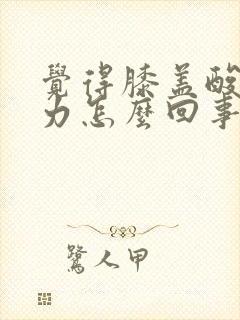 覺得膝盖酸
力怎麼回事
鷺人甲